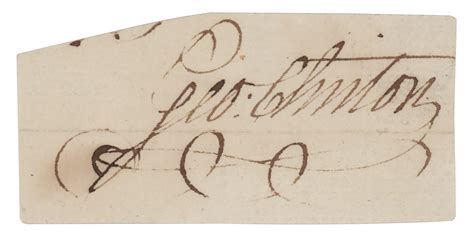 Geo: Clinton